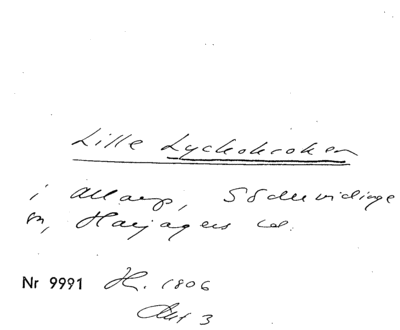 Lille Lyckokroken
i Allarp, Södervidinge
sn, Harjagers hd.
Nr 9991 H. 1806
Akt 3